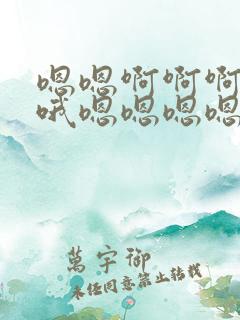 嗯嗯啊啊啊
哦嗯嗯嗯嗯
萬宇御
未经同意禁止转载